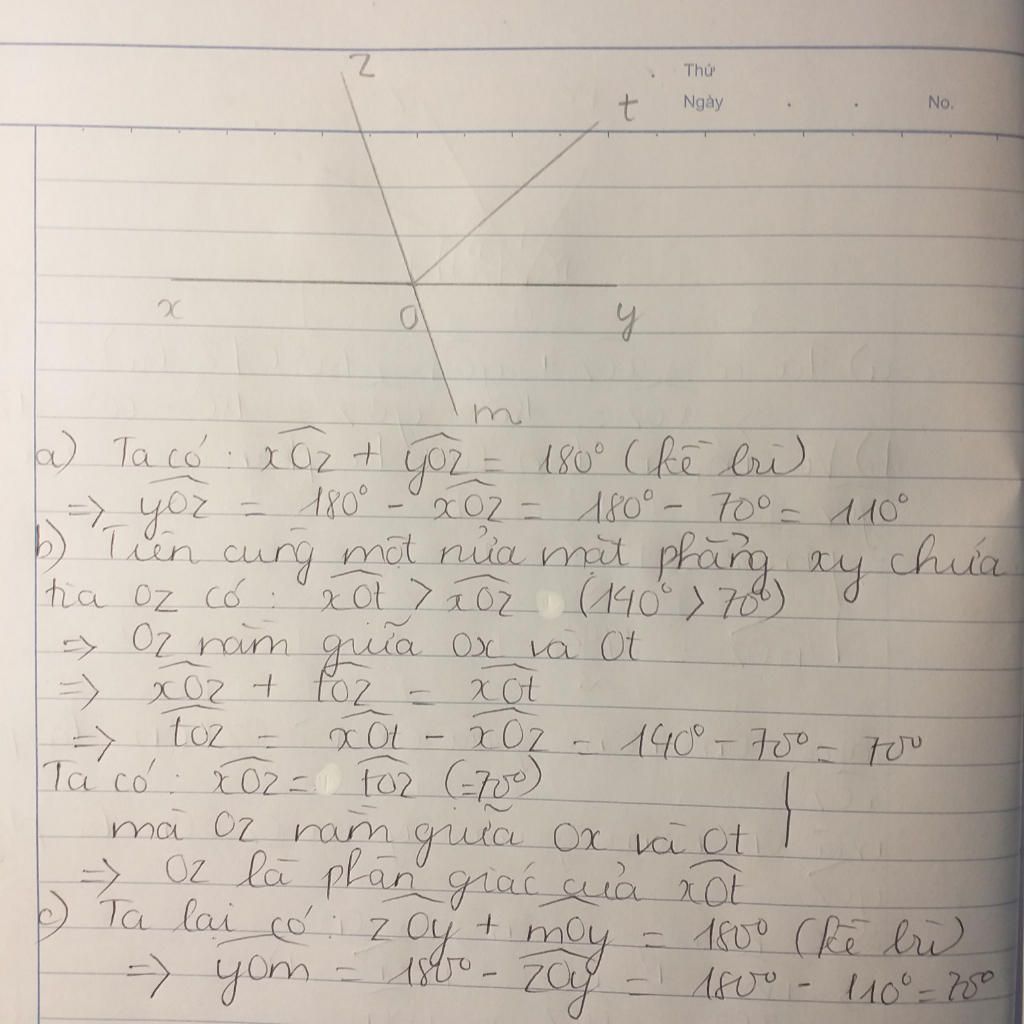 z
Thứ
t
Ngày . . No.
x
O
y
m
a) Ta có: xOz + yOz = 180° (kề bù)
=> yOz = 180° - xOz = 180° - 70° = 110°
b) Trên cùng một nửa mặt phẳng xy chứa
tia Oz có: xOt > xOz (140° > 70°)
=> Oz nằm giữa Ox và Ot
=> xOz + tOz = xOt
=> tOz = xOt - xOz = 140° - 70° = 70°
Ta có: xOz = tOz (=70°)
mà Oz nằm giữa Ox và Ot
=> Oz là phân giác của xOt
c) Ta lại có: zOy + mOy = 180° (kề bù)
=> yOm = 180° - zOy = 180° - 110° = 70°